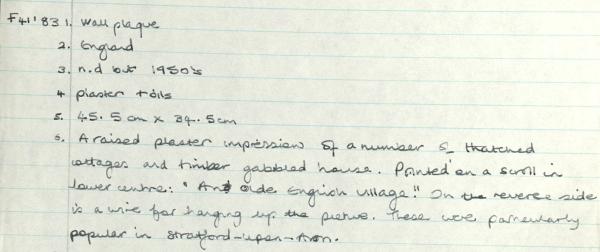 F41'83 1. Wall plaque
2. England
3. n.d but 1950's
4 plaster + oils
5. 45.5cm x 34.5cm
6. A raised plaster impression of a number of thatched
cottages and timber gabbled house. Printed on a scroll in
lower centre: "An olde English Village!" On the reverse side
is a wire for hanging up the picture. These were particularly
popular in Stratford-upon-Avon.